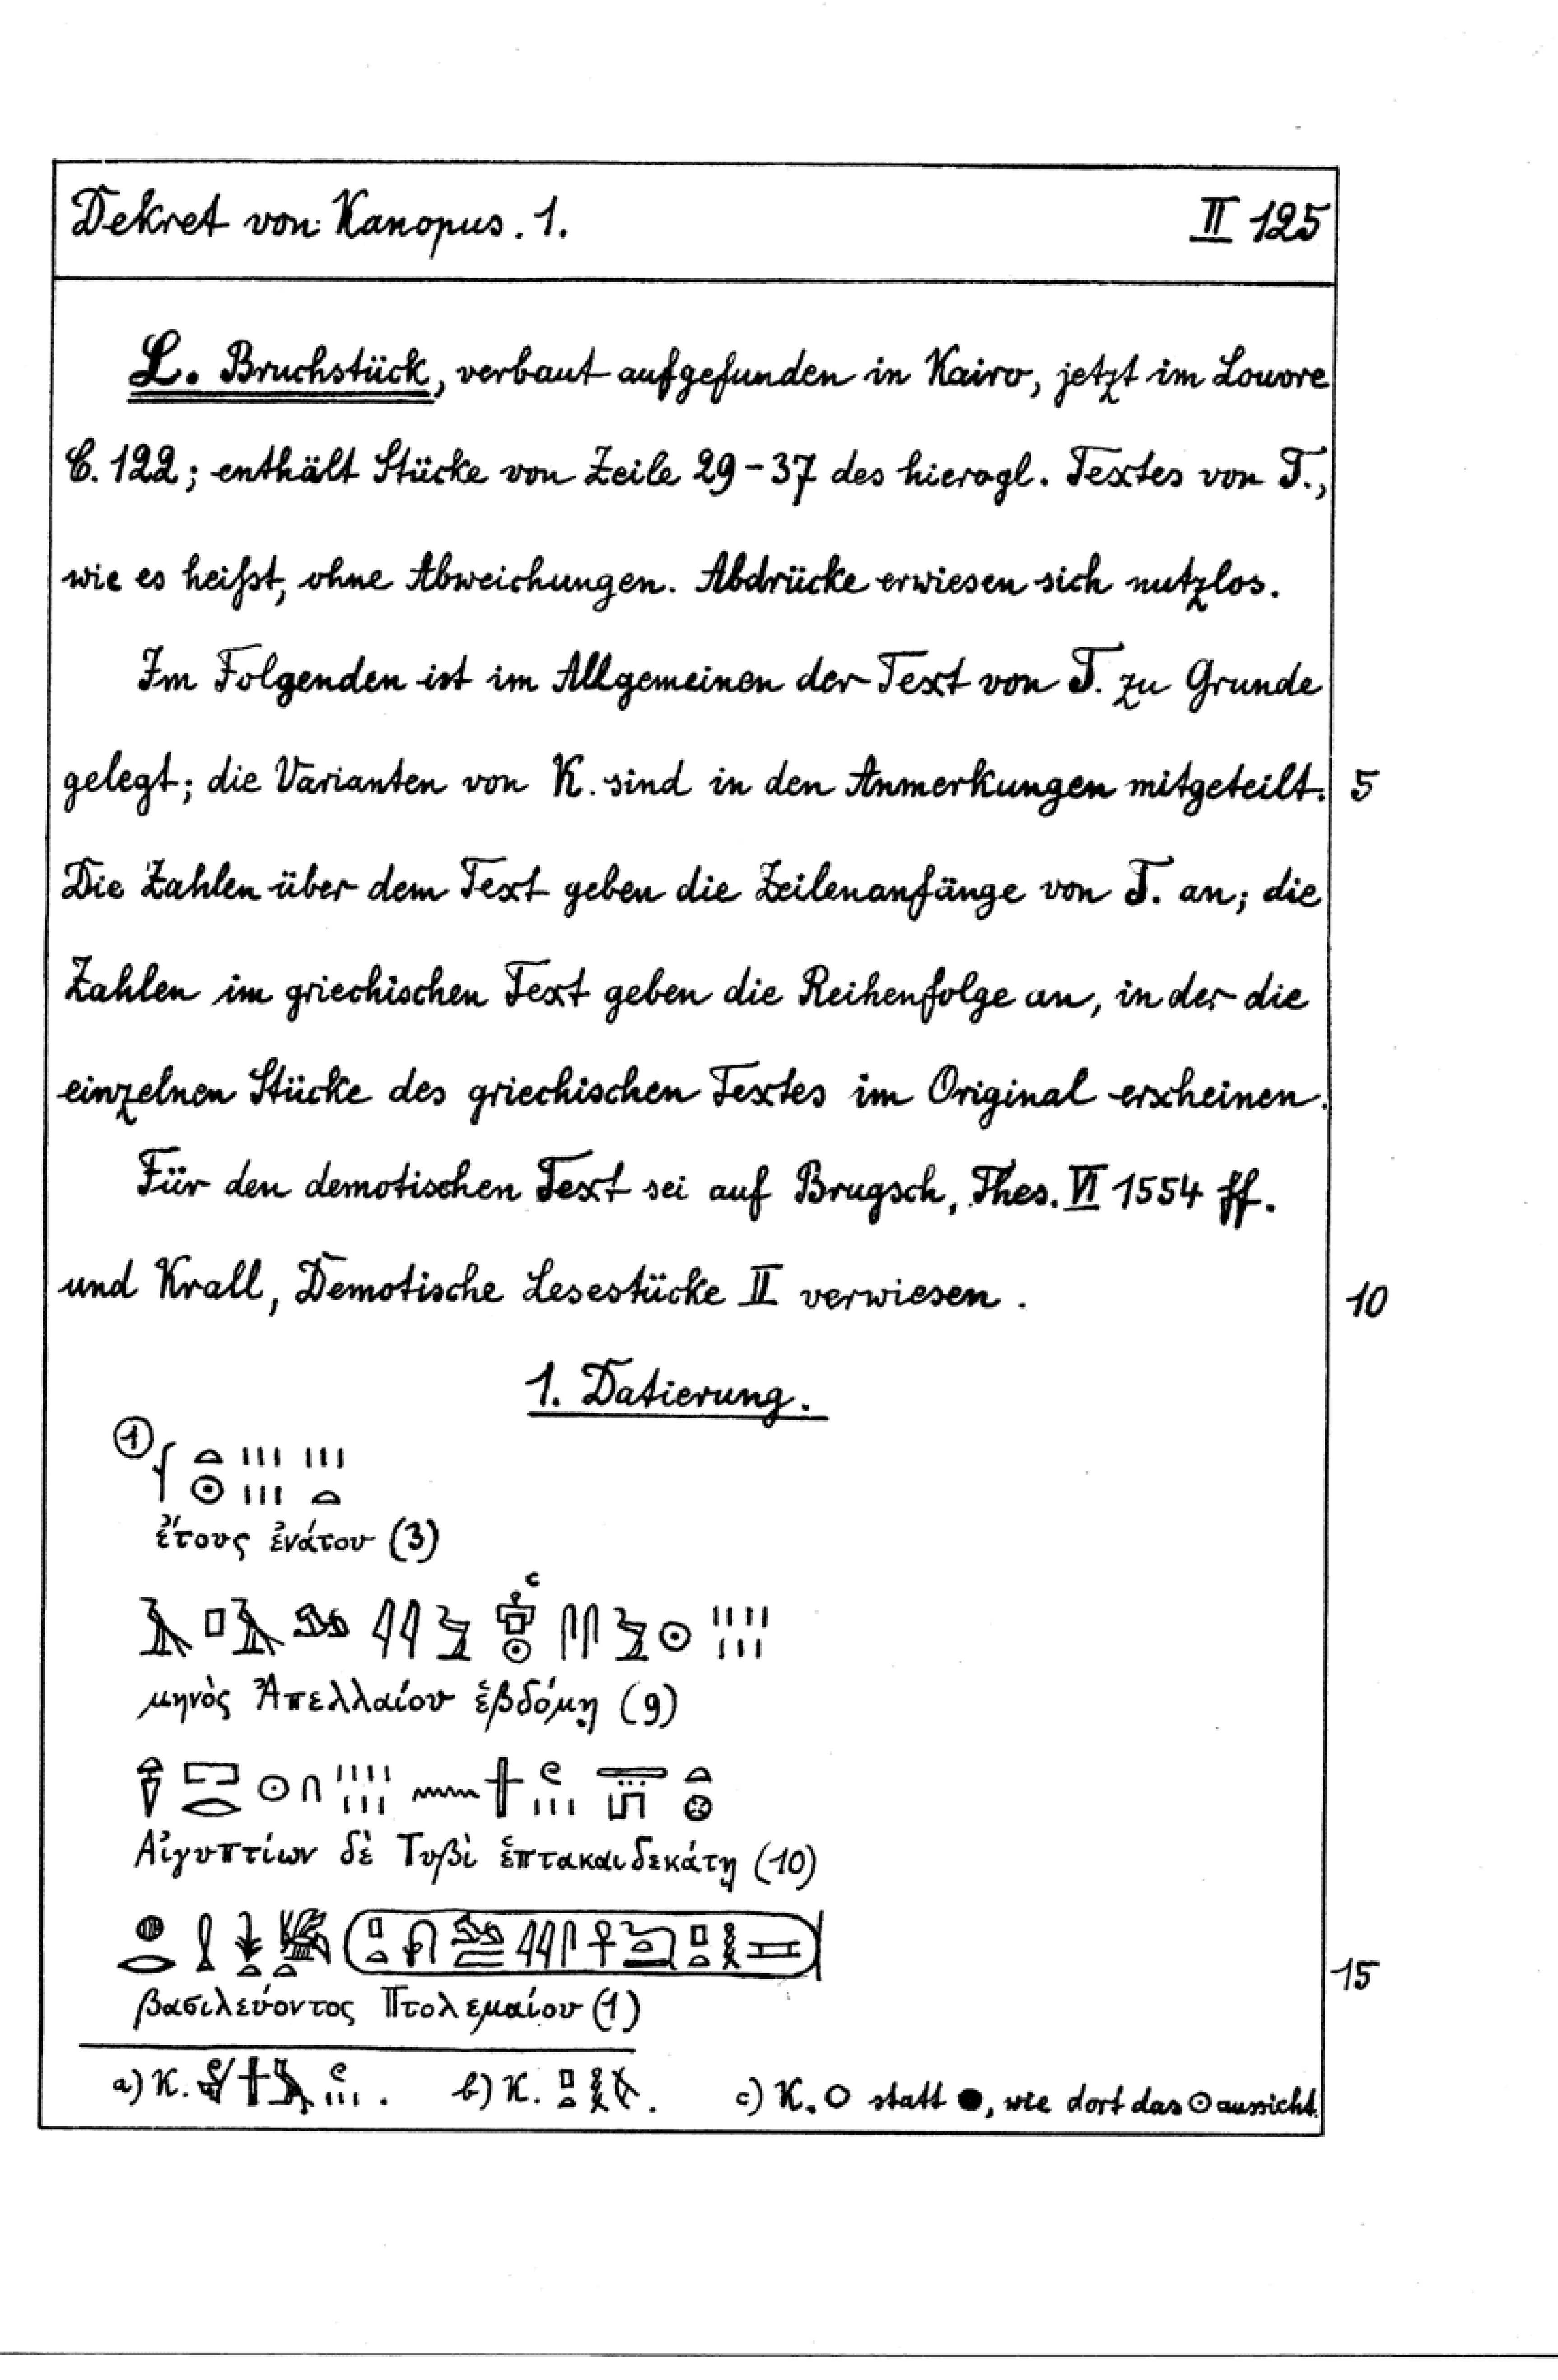 Dekret von Kanopus. 1. II 125
L. Bruchstück, verbaut aufgefunden in Kairo, jetzt im Louvre
C. 122; enthält Stücke von Zeile 29-37 des hierogl. Textes von T.,
wie es heißt, ohne Abweichungen. Abdrücke erwiesen sich nutzlos.
Im Folgenden ist im Allgemeinen der Text von T. zu Grunde
gelegt; die Varianten von K. sind in den Anmerkungen mitgeteilt. 5
Die Zahlen über dem Text geben die Zeilenanfänge von T. an; die
Zahlen im griechischen Text geben die Reihenfolge an, in der die
einzelnen Stücke des griechischen Textes im Original erscheinen.
Für den demotischen Text sei auf Brugsch, Thes. VI 1554 ff.
und Krall, Demotische Lesestücke II verwiesen. 10
1. Datierung.
1
ἔτους ἐνάτου (3)
c
μηνὸς Ἀπελλαίου ἑβδόμῃ (9)
Αἰγυπτίων δὲ Τυβὶ ἑπτακαιδεκάτῃ (10)
15
βασιλεύοντος Πτολεμαίου (1)
a) K. . b) K. . c) K. O statt ●, wie dort das ⊙ aussieht.